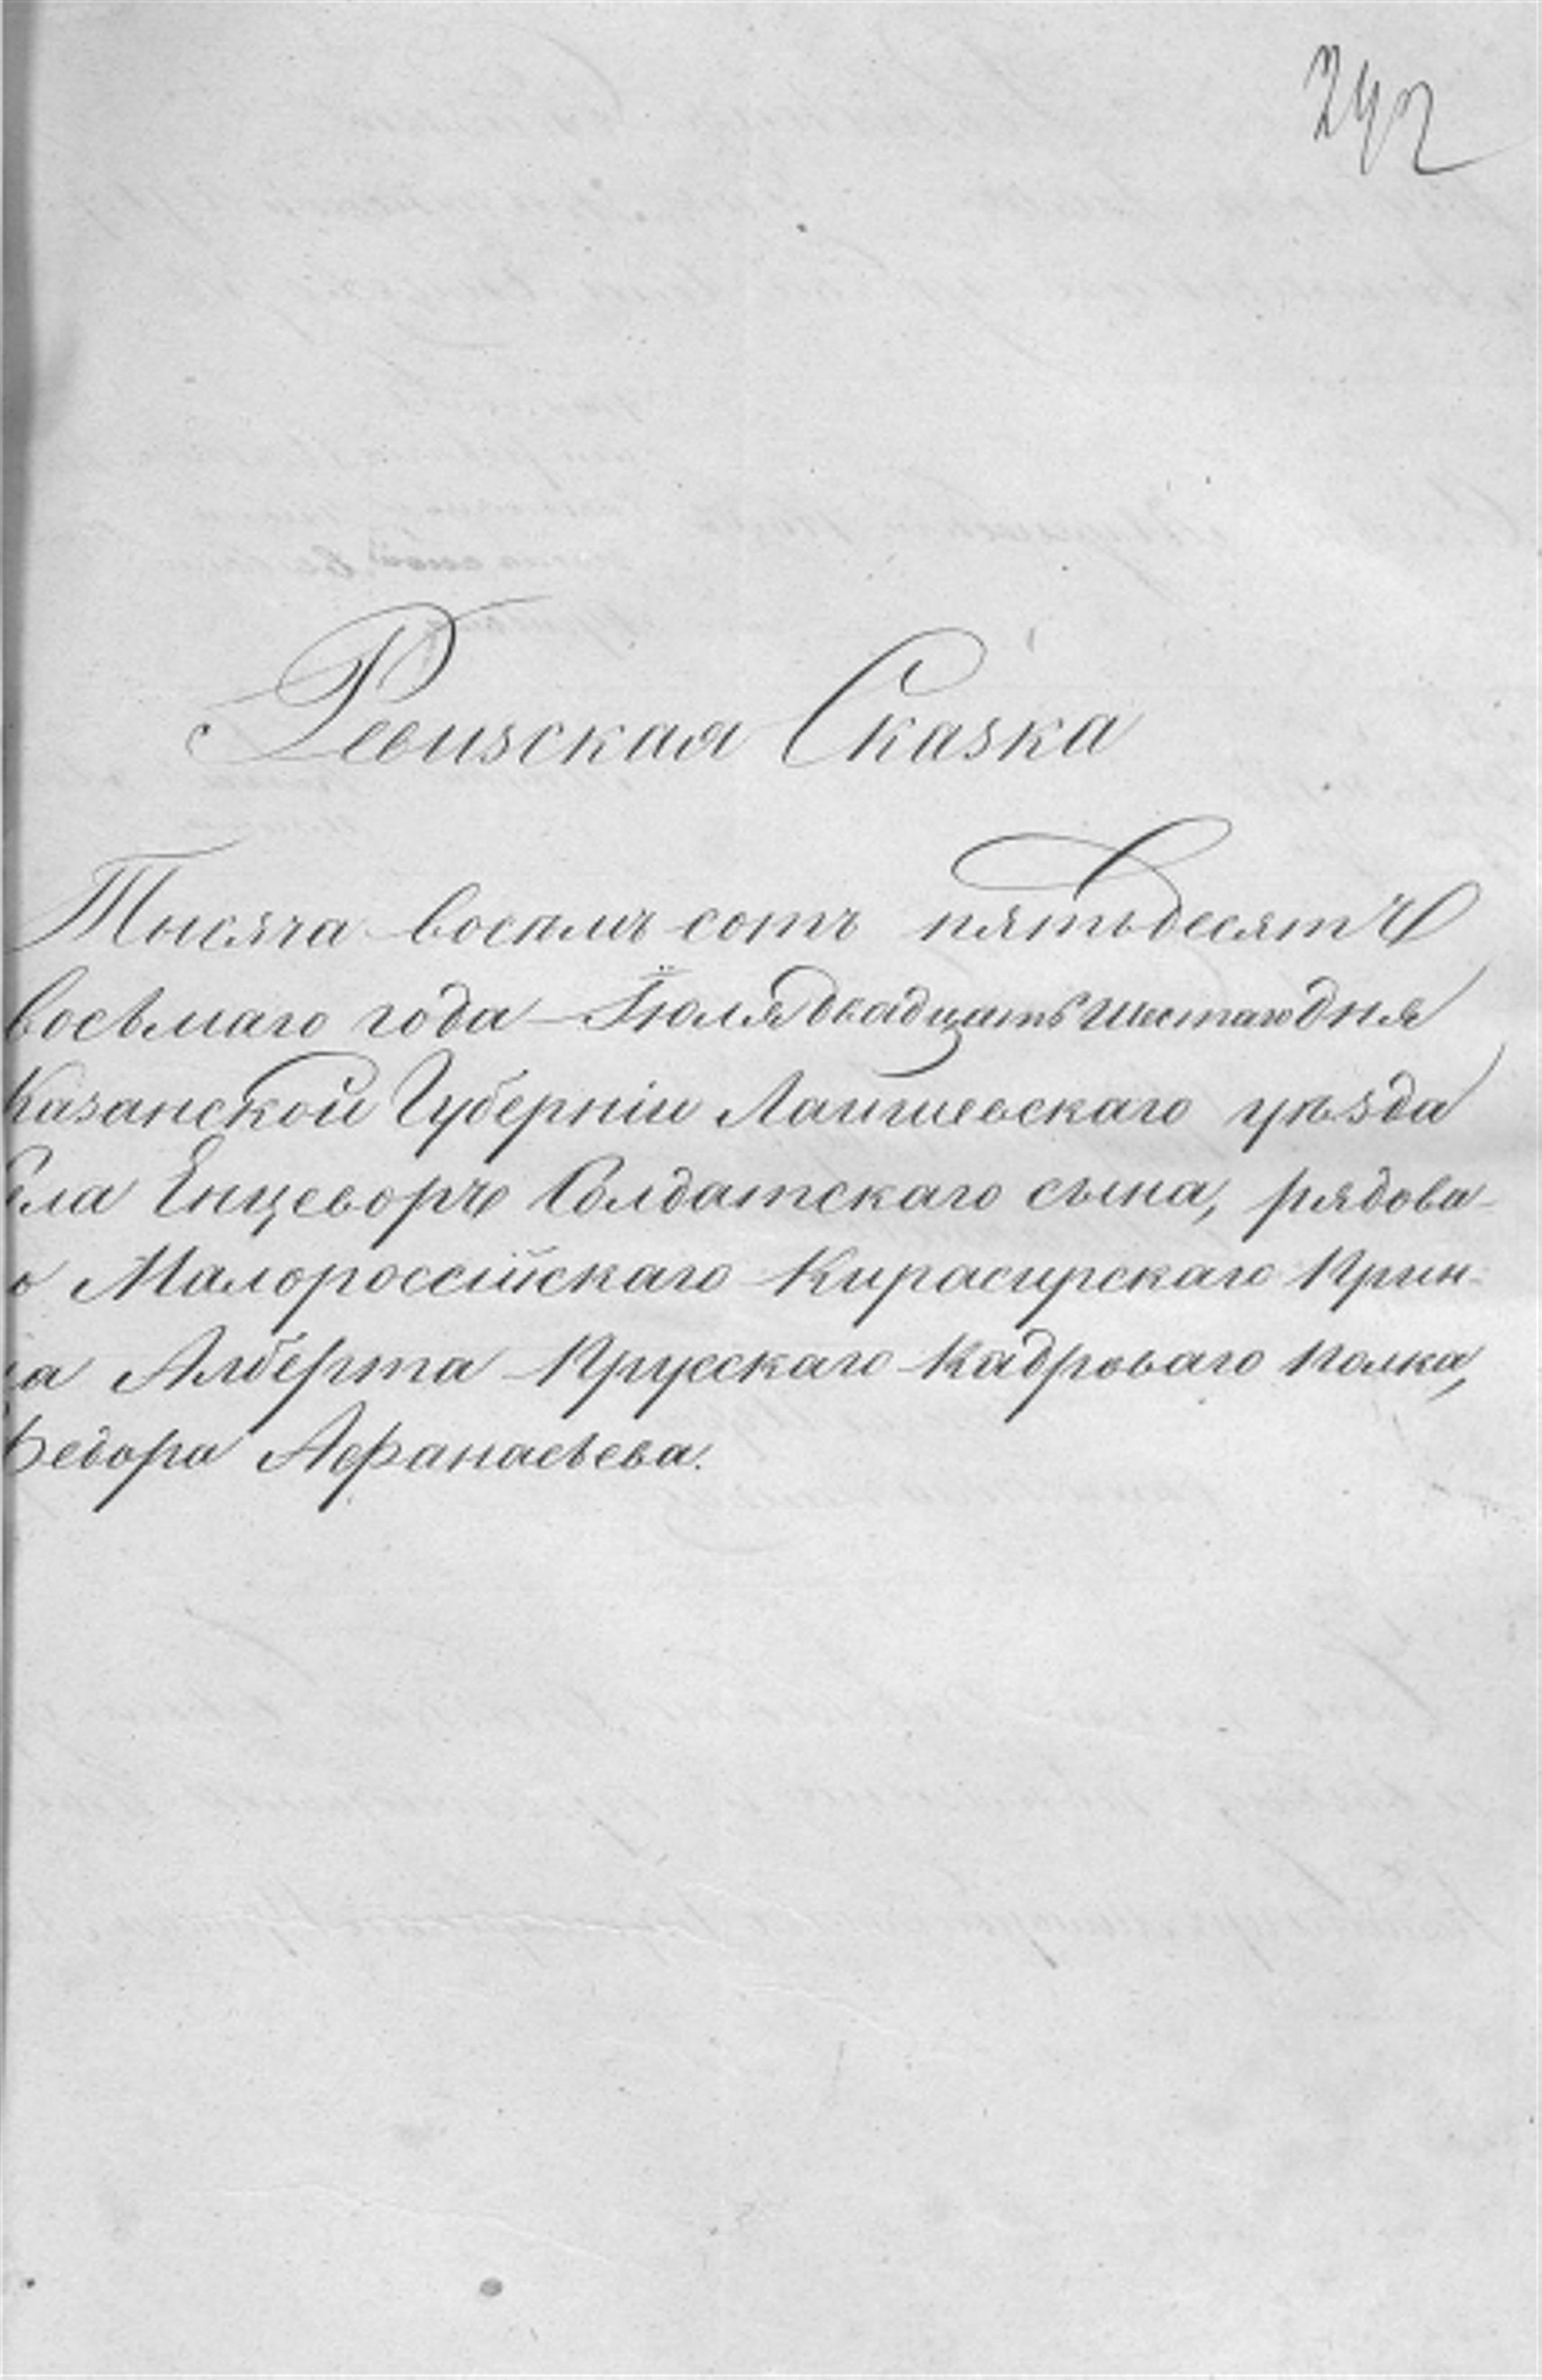 242
Ревизская Сказка
Тысяча восемь сотъ пятьдесятъ
восьмаго года Іюля двадцать шестаго дня
Казанской Губерніи Лаишевскаго уѣзда
села Енцеворъ Солдатскаго сына, рядова-
о Малороссійскаго Кирасирскаго Прин-
ца Алберта Прусскаго Кадроваго полка,
Федора Афанасьева.